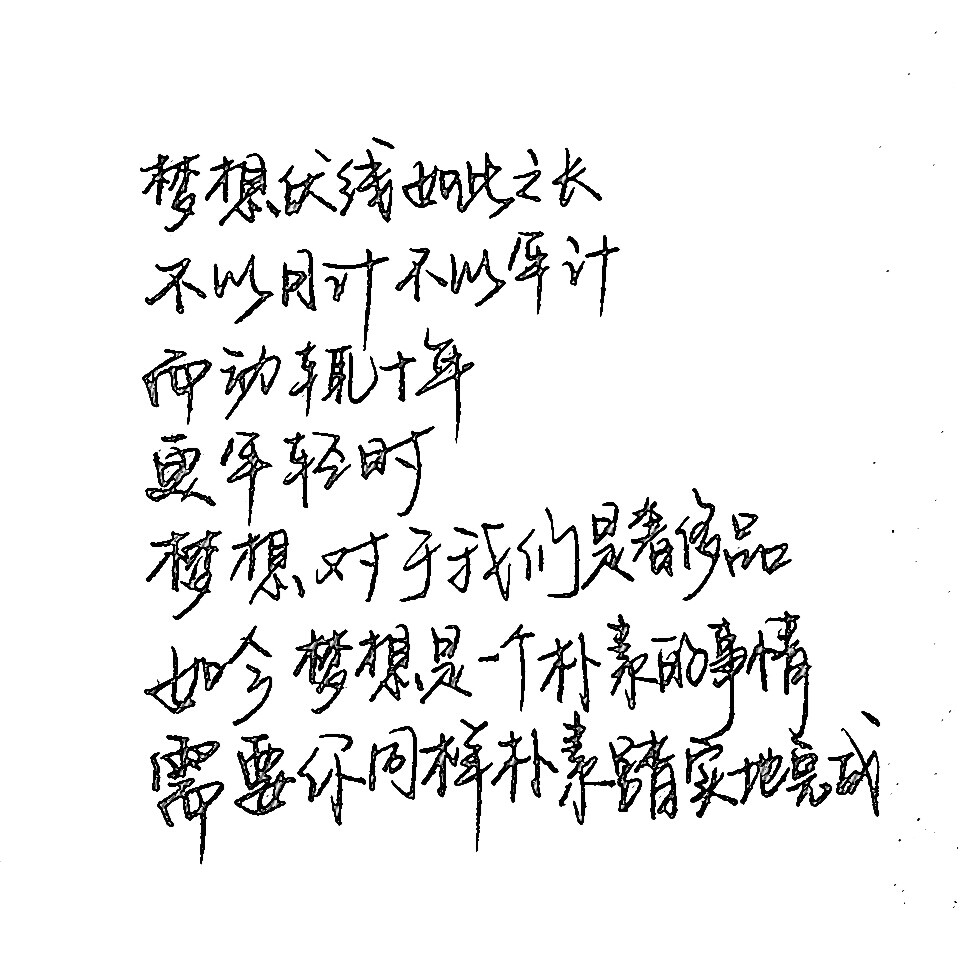 梦想伏线如此之长
不以月计不以年计
而动辄十年
更年轻时
梦想对于我们是奢侈品
如今梦想是一个朴素的事情
需要你同样朴素踏实地完成